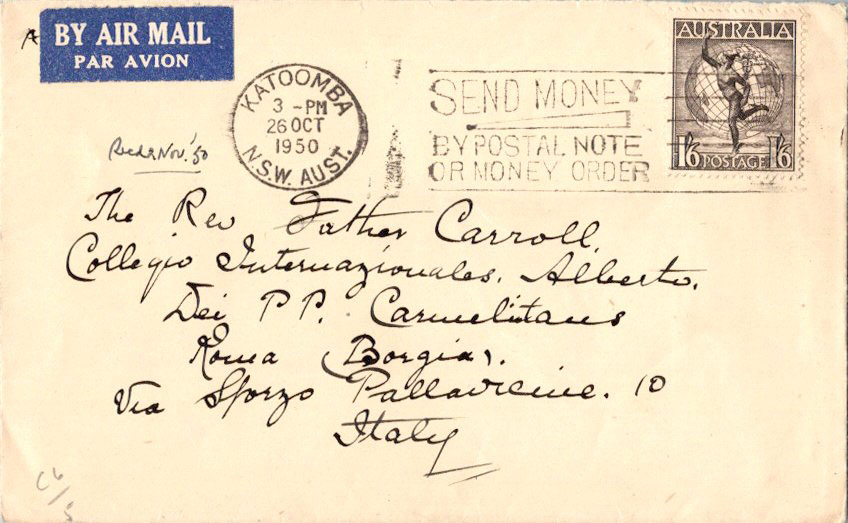 BY AIR MAIL
PAR AVION
KATOOMBA
3 - PM
26 OCT
1950
N.S.W. AUST.
SEND MONEY
BY POSTAL NOTE
OR MONEY ORDER
AUSTRALIA
1/6 POSTAGE 1/6
Nov. '50
The Rev Father Carroll,
Collegio Internazionales. Alberto.
Dei P.P. Carmelitans
Roma (Borgia).
Via Sforzo Pallavicine. 10
Italy